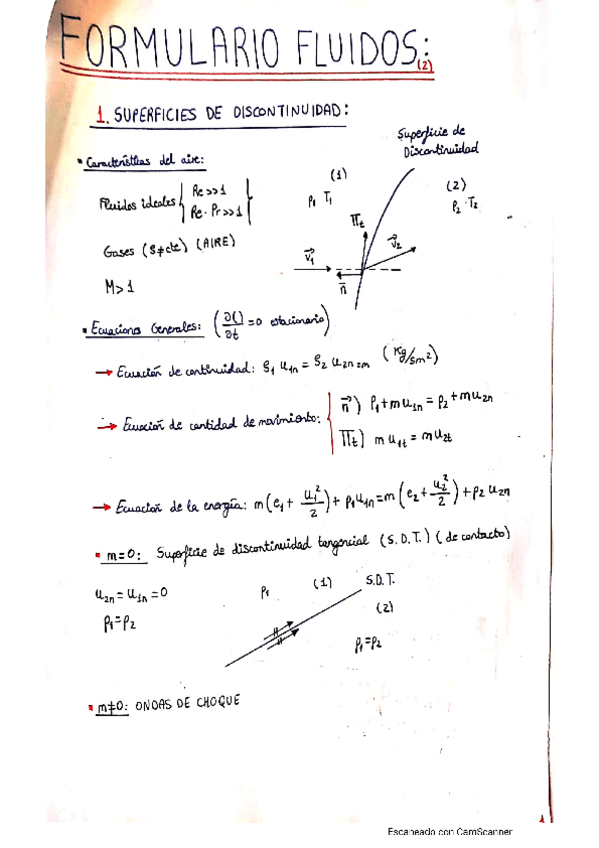 FORMULARIO FLUIDOS: (2)
1. SUPERFICIES DE DISCONTINUIDAD:
• Características del aire:
Superficie de
Discontinuidad
Fluidos ideales { Re >> 1
Re · Pr >> 1 }
Gases (ρ ≠ cte) (AIRE)
M > 1
(1)
P1 T1
(2)
P2 · T2
Πt
v⃗1
v⃗2
n⃗
• Ecuaciones Generales: (∂( )/∂t = 0 estacionario)
→ Ecuación de continuidad: ρ1 u1n = ρ2 u2n = m (kg/sm²)
→ Ecuación de cantidad de movimiento: n⃗) P1 + m u1n = P2 + m u2n
Πt) m u1t = m u2t
→ Ecuación de la energía: m(e1 + u1²/2) + P1 u1n = m(e2 + u2²/2) + P2 u2n
• m=0: Superficie de discontinuidad tangencial (S.D.T.) (de contacto)
u2n = u1n = 0
P1 = P2
P1
(1)
S.D.T.
(2)
P1 = P2
• m≠0: ONDAS DE CHOQUE
Escaneado con CamScanner